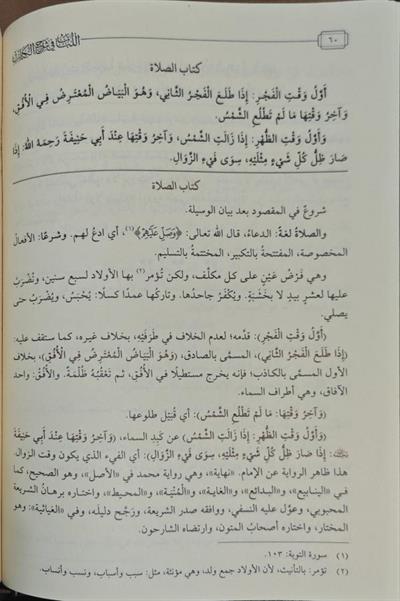 ٦٠
اللباب في شرح الكتاب
كتاب الصلاة
أَوَّلُ وَقْتِ الْفَجْرِ: إِذَا طَلَعَ الْفَجْرُ الثَّانِي، وَهُوَ الْبَيَاضُ الْمُعْتَرِضُ فِي الْأُفُقِ،
وَآخِرُ وَقْتِهَا مَا لَمْ تَطْلُعِ الشَّمْسُ.
وَأَوَّلُ وَقْتِ الظُّهْرِ: إِذَا زَالَتِ الشَّمْسُ، وَآخِرُ وَقْتِهَا عِنْدَ أَبِي حَنِيفَةَ رَحِمَهُ اللهُ: إِذَا
صَارَ ظِلُّ كُلِّ شَيْءٍ مِثْلَيْهِ، سِوَى فَيْءِ الزَّوَالِ.
كتاب الصلاة
شروع في المقصود بعد بيان الوسيلة.
والصلاة لغةً: الدعاء، قال الله تعالى: ﴿وَصَلِّ عَلَيْهِمْ﴾(١)، أي ادعُ لهم. وشرعًا: الأفعال
المخصوصة، المفتتحة بالتكبير، المختتمة بالتسليم.
وهي فَرْضُ عَيْنٍ على كل مكلَّف، ولكن تُؤمر(٢) بها الأولاد لسبع سنين، وتُضْرَبُ
عليها لعشرٍ بيدٍ لا بخَشَبَةٍ. ويُكْفَرُ جاحدها. وتاركها عمدًا كسلًا: يُحْبَسُ، ويُضْرَبُ حتى
يصلي.
(أَوَّلُ وَقْتِ الْفَجْرِ): قدَّمه؛ لعدم الخلاف في طَرَفَيْهِ، بخلاف غيره، كما ستقف عليه:
(إِذَا طَلَعَ الْفَجْرُ الثَّانِي)، المسمَّى بالصادق، (وَهُوَ الْبَيَاضُ الْمُعْتَرِضُ فِي الْأُفُقِ)، بخلاف
الأول المسمَّى بالكاذب؛ فإنه يخرج مستطيلًا في الأُفُقِ، ثم تَعْقُبُهُ ظُلْمَةٌ. والأُفُقُ: واحد
الآفاق، وهي أطراف السماء.
(وَآخِرُ وَقْتِهَا: مَا لَمْ تَطْلُعِ الشَّمْسُ): أي قُبَيْلَ طلوعها.
(وَأَوَّلُ وَقْتِ الظُّهْرِ: إِذَا زَالَتِ الشَّمْسُ) عن كَبِدِ السماء، (وَآخِرُ وَقْتِهَا عِنْدَ أَبِي حَنِيفَةَ
: إِذَا صَارَ ظِلُّ كُلِّ شَيْءٍ مِثْلَيْهِ، سِوَى فَيْءِ الزَّوَالِ): أي الفيء الذي يكون وقت الزوال.
هذا ظاهر الرواية عن الإمام. «نهاية»، وهي رواية محمد في «الأصل»، وهو الصحيح، كما
في «الينابيع»، و«البدائع»، و«الغاية»، و«الْمُنْيَة»، و«المحيط»، واختاره برهانُ الشريعة
المحبوبي، وعوَّل عليه النسفي، ووافقه صدر الشريعة، ورَجَّح دليلَه، وفي «الغياثية»: وهو
المختار، واختاره أصحابُ المتون، وارتضاه الشارحون.
(١) سورة التوبة: ١٠٣.
(٢) تؤمر: بالتأنيث، لأن الأولاد جمع ولد، وهي مؤنثة، مثل: سبب وأسباب، ونسب وأنساب.